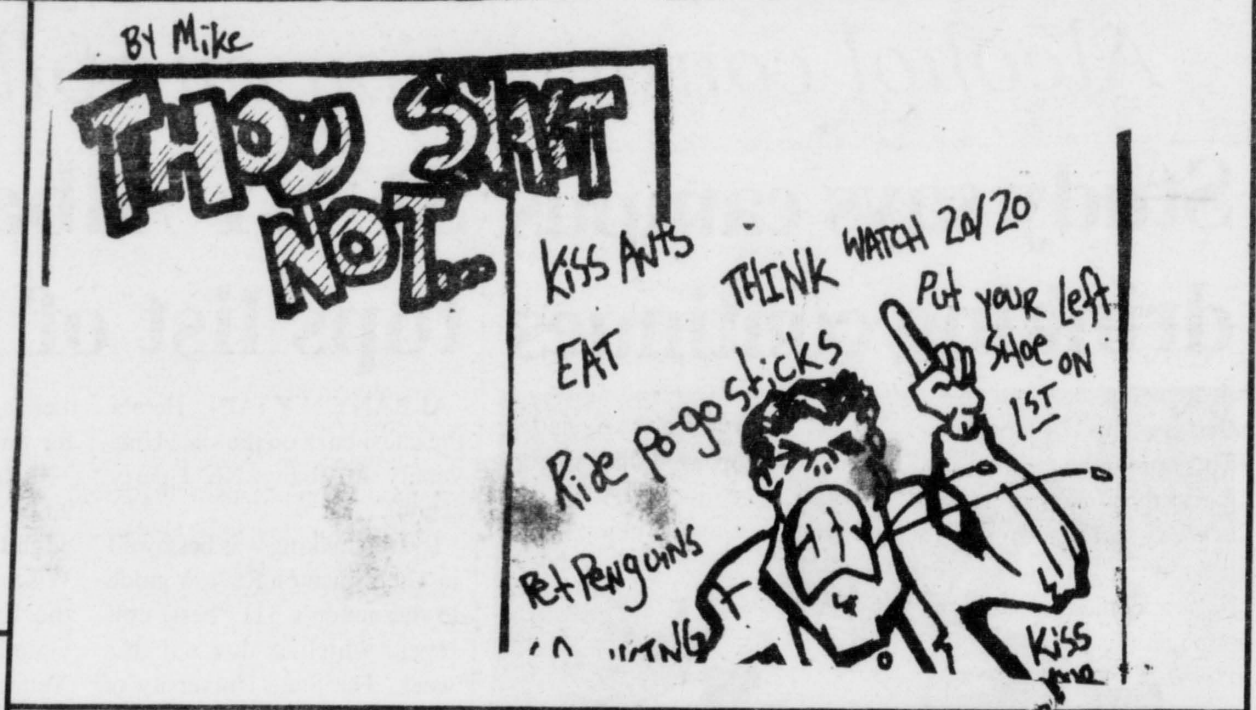 BY Mike
THOU SHALT
NOT...
KiSS ANTS
THINK
WATCH 20/20
EAT
Put your left
SHOE ON
1ST
Ride po-go sticks
Pet PENguiNS
KiSS